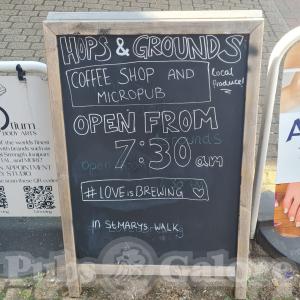 HOPS & GROUNDS
COFFEE SHOP AND
MICROPUB
Local
Produce!
OPEN FROM
7:30 am
#LOVEISBREWING
IN ST.MARYS WALK
BODY ARTS
Pubs Galore